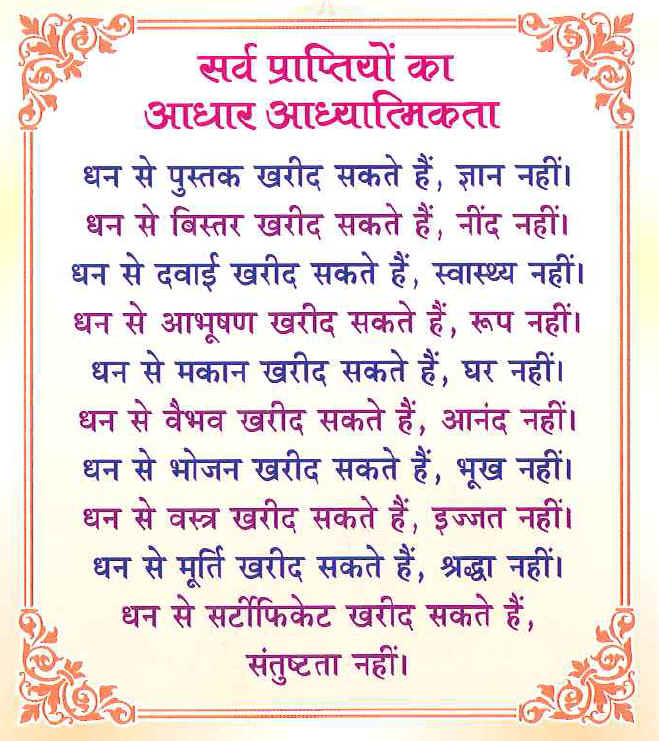 सर्व प्राप्तियों का
आधार आध्यात्मिकता
धन से पुस्तक खरीद सकते हैं, ज्ञान नहीं।
धन से बिस्तर खरीद सकते हैं, नींद नहीं।
धन से दवाई खरीद सकते हैं, स्वास्थ्य नहीं।
धन से आभूषण खरीद सकते हैं, रूप नहीं।
धन से मकान खरीद सकते हैं, घर नहीं।
धन से वैभव खरीद सकते हैं, आनंद नहीं।
धन से भोजन खरीद सकते हैं, भूख नहीं।
धन से वस्त्र खरीद सकते हैं, इज्जत नहीं।
धन से मूर्ति खरीद सकते हैं, श्रद्धा नहीं।
धन से सर्टीफिकेट खरीद सकते हैं,
संतुष्टता नहीं।